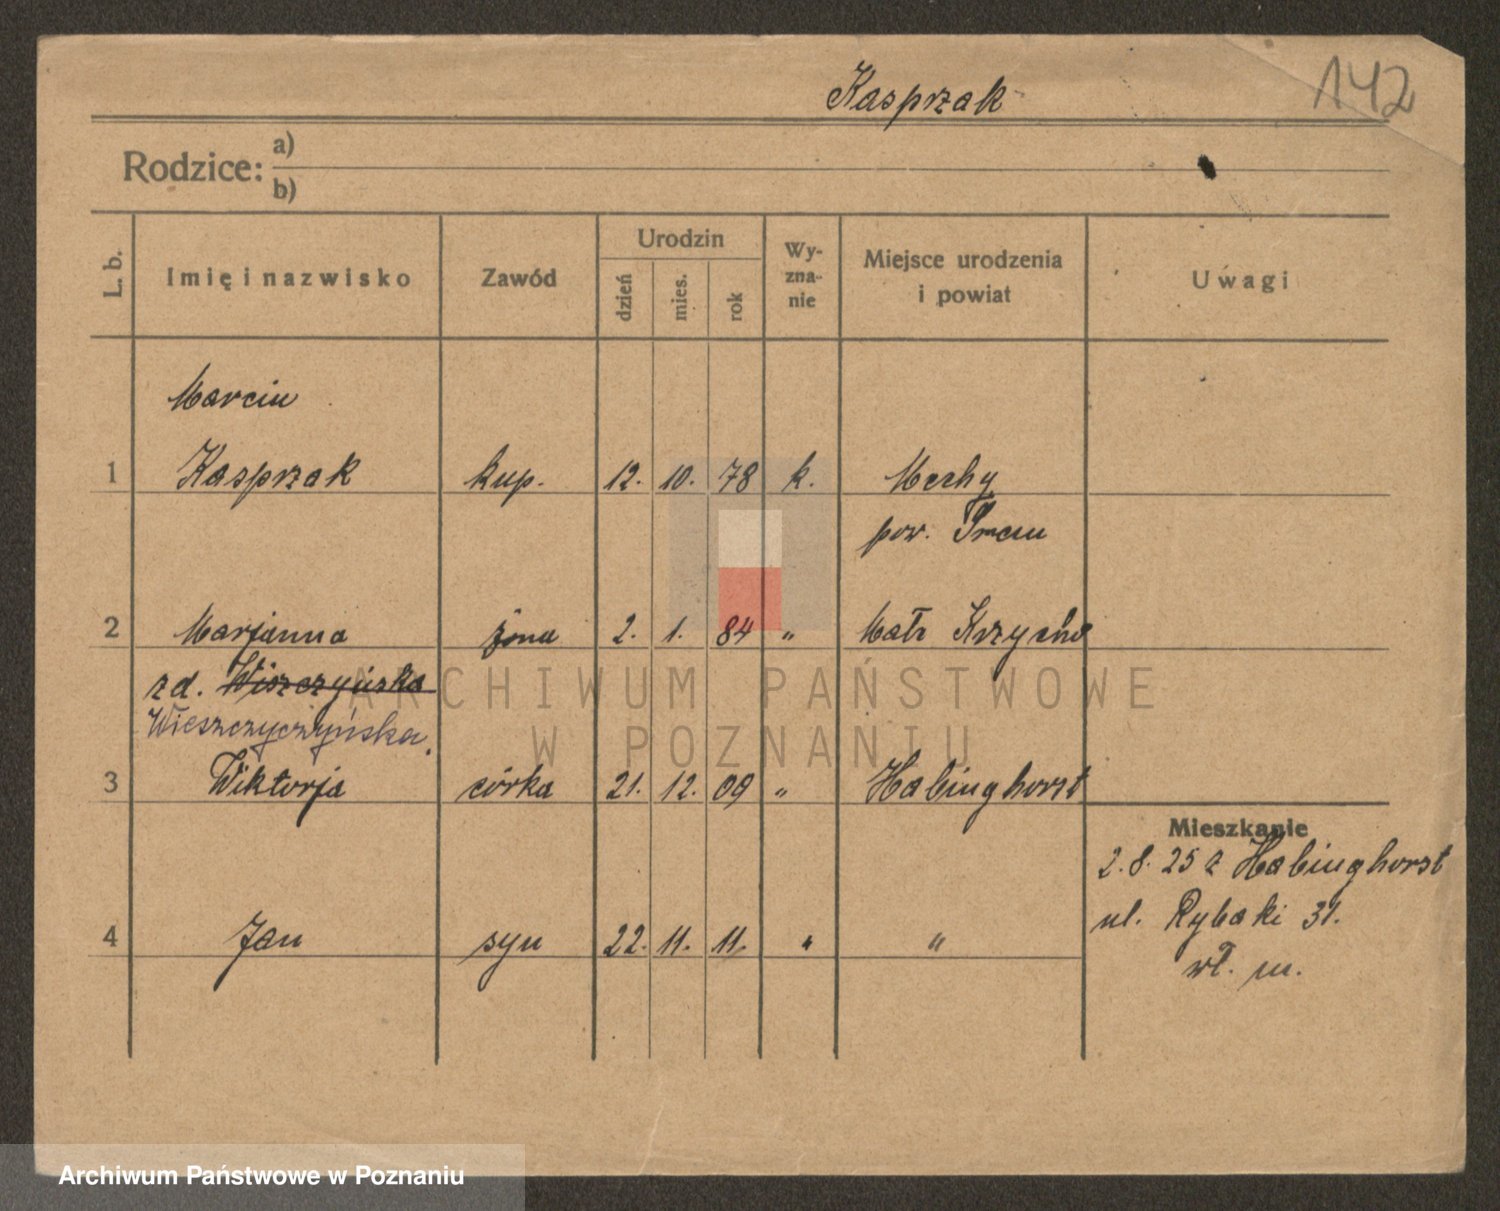 Kasprzak
142
Rodzice: a)
b)
L. b.
Imię i nazwisko
Zawód
Urodzin
dzień
mies.
rok
Wy-
zna-
nie
Miejsce urodzenia
i powiat
Uwagi
Marcin
1 Kasprzak kup. 12. 10. 78 k. Mechy
pow. Śrem
2 Marjanna żona 2. 1. 84 „ Małe Krzycko
zd. Wiszczyńska
Wieszczyczyńska.
3 Wiktorja córka 21. 12. 09 „ Habinghorst
Mieszkanie
2.8.25 z Habinghorst
ul. Rybaki 31.
wł. m.
4 Jan syn 22. 11. 11. „ „
ARCHIWUM PAŃSTWOWE
W POZNANIU
Archiwum Państwowe w Poznaniu